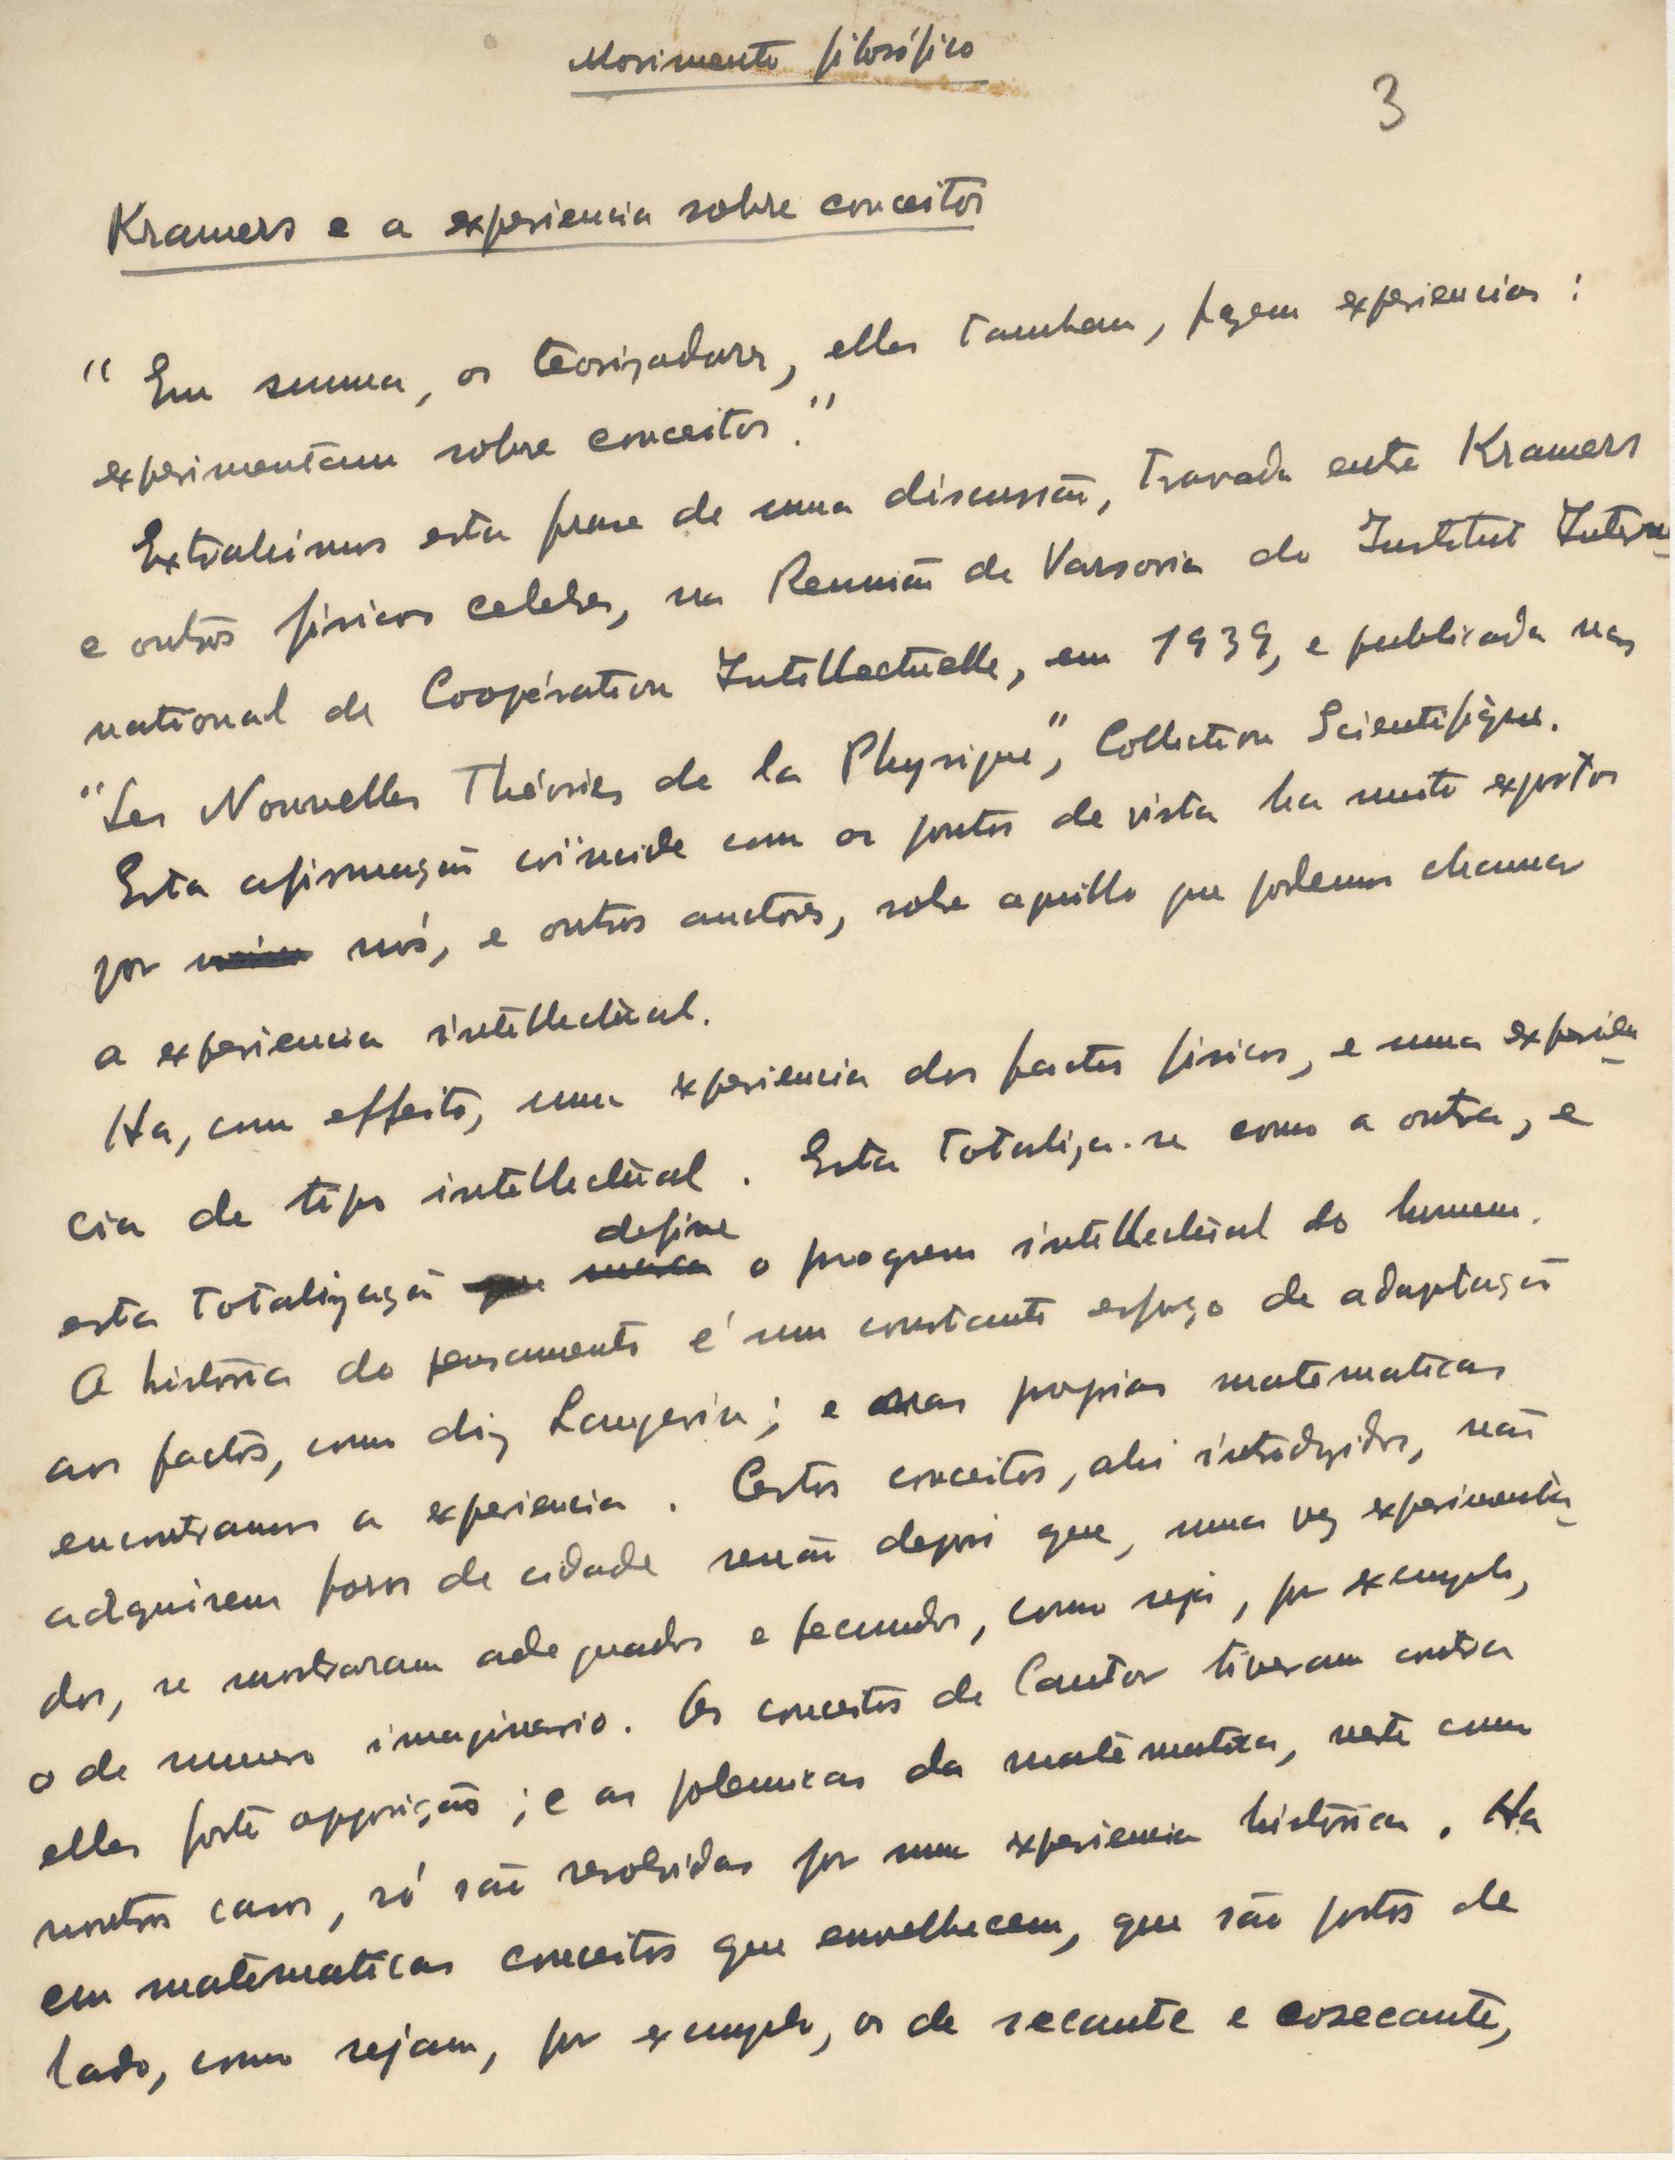 Movimento filosófico
3
Kramers e a experiencia sobre conceitos
"Em summa, os teorizadores, elles tambem, fazem experiencias:
experimentam sobre conceitos."
Extrahimos esta frase de uma discussão, travada entre Kramers
e outros físicos celebres, na Reunião de Varsovia do Institut Inter-
national de Coopération Intellectuelle, em 1939, e publicada nas
"Les Nouvelles Théories de la Physique", Collection Scientifique.
Esta afirmação coïncide com os pontos de vista ha muito expostos
por nós, e outros auctores, sobre aquillo que podemos chamar
a experiencia intellectual.
Ha, com effeito, uma experiencia dos factos físicos, e uma experien-
cia de tipo intellectual. Esta totaliza-se como a outra, e
define
esta totalização o progresso intellectual do homem.
A história do pensamento é um constante esforço de adaptação
aos factos, como diz Langevin; e nas proprias matematicas
encontramos a experiencia. Certos conceitos, ahi introduzidos, não
adquirem foros de cidade senão depois que, uma vez experimenta-
dos, se mostraram adequados e fecundos, como seja, por exemplo,
o de numero imaginario. Os conceitos de Cantor tiveram contra
elles forte opposição; e as polemicas da matematica, neste como
noutros casos, só são resolvidas por uma experiencia histórica. Ha
em matematicas conceitos que envelhecem, que são postos de
lado, como sejam, por exemplo, os de secante e cosecante,